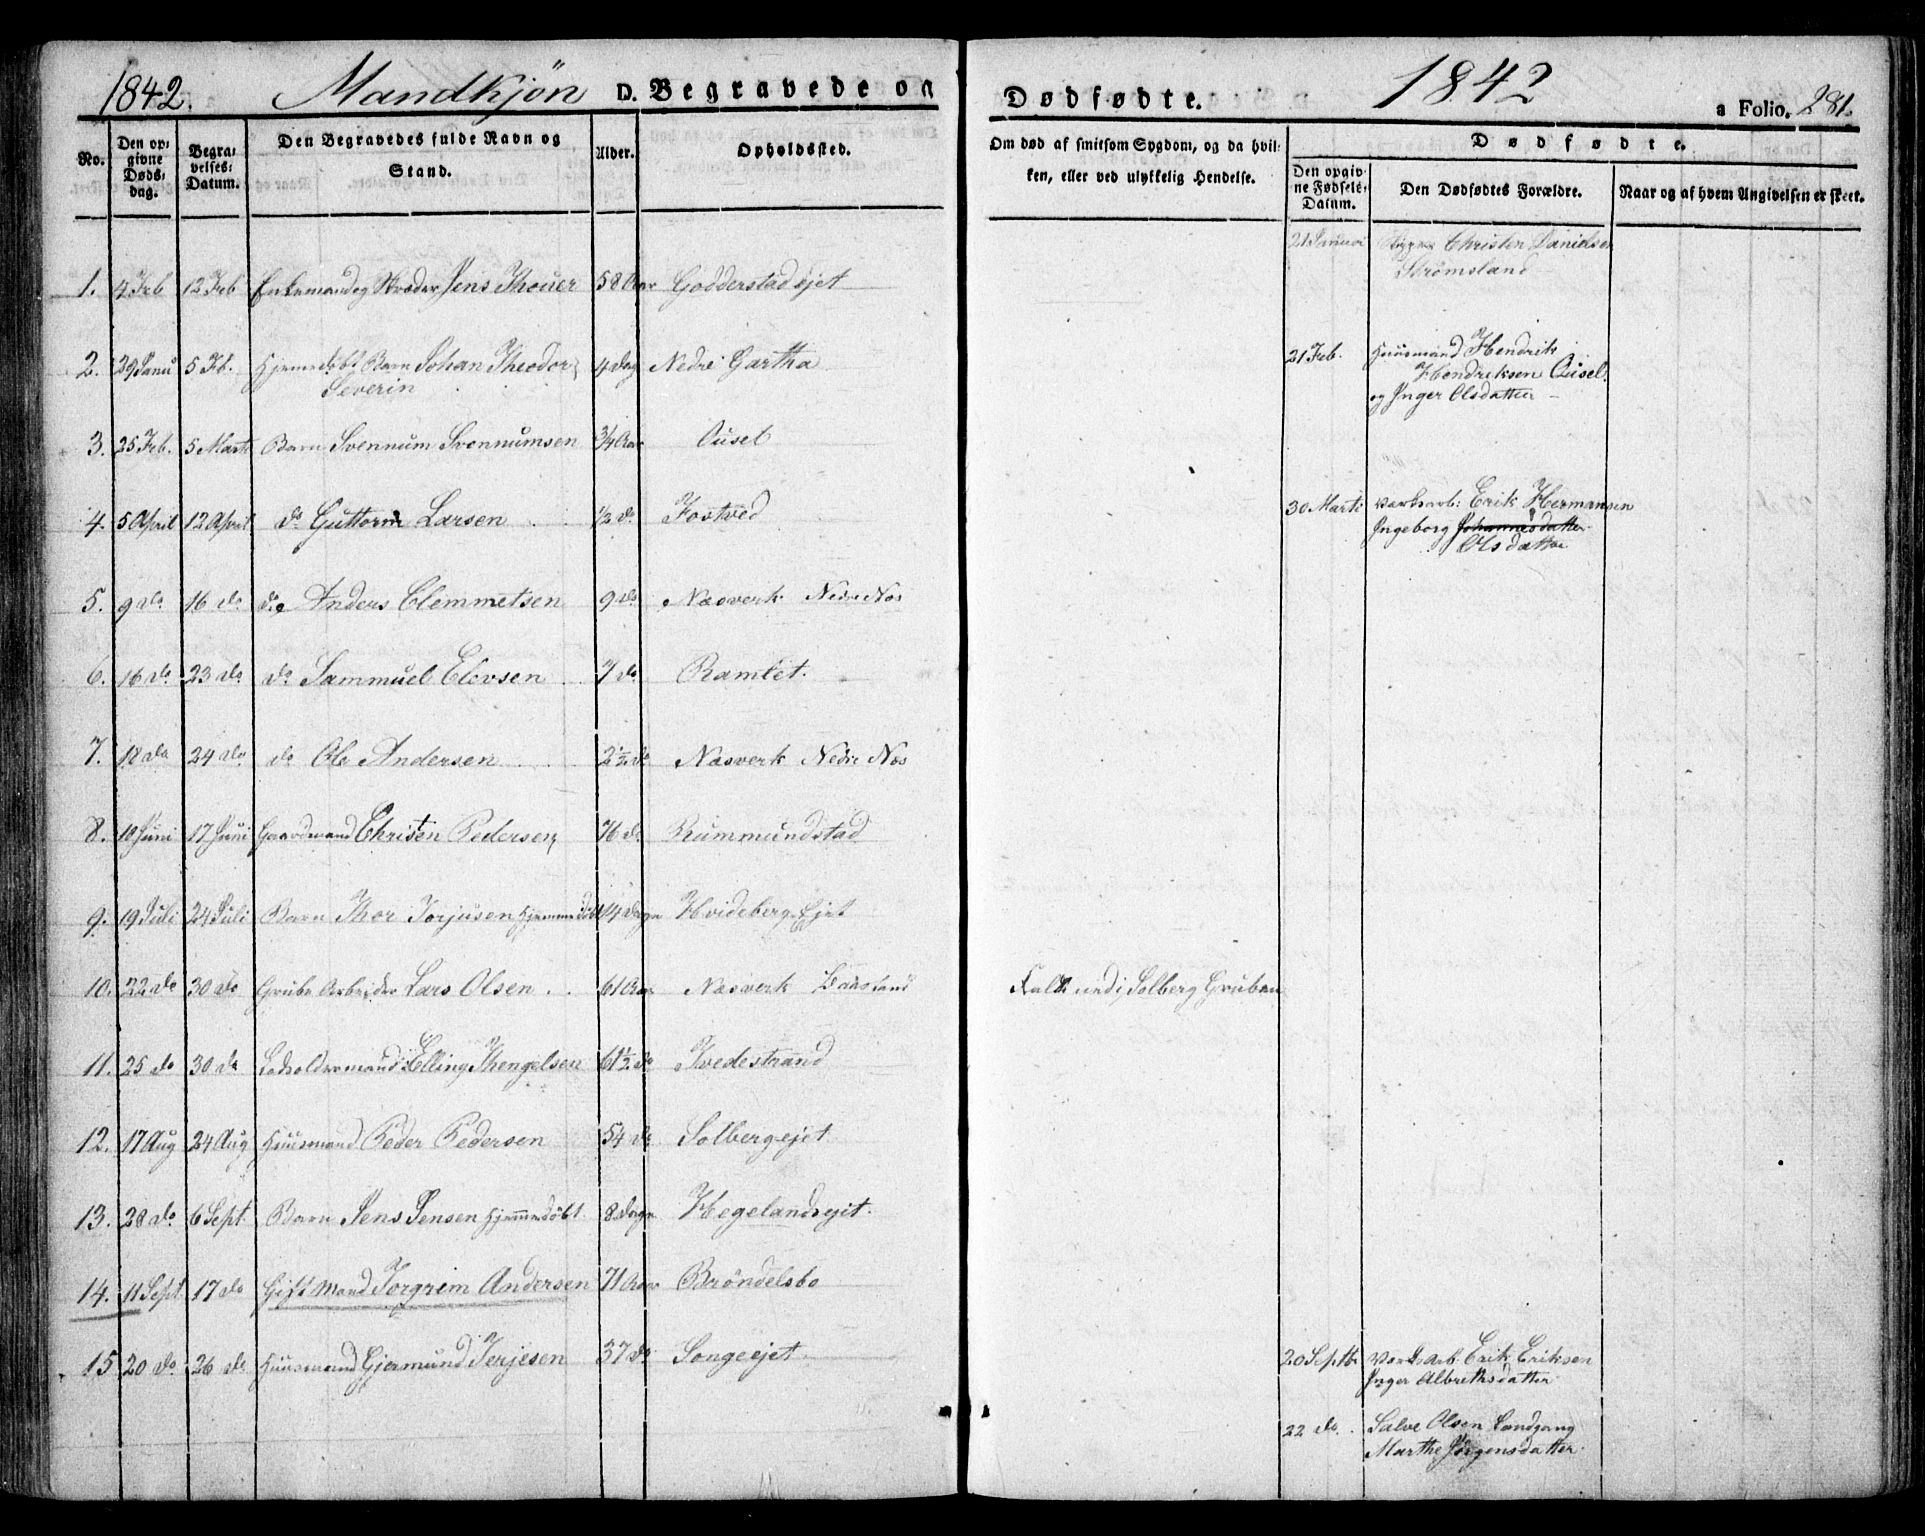 1842. Mandkjön D. Begravede og Dødfødte. 1842 a Folio. 281.
No. Den opgivne Dødsdag. Begravelses-Datum. Den Begravedes fulde Navn og Stand. Alder. Opholdssted. Om død af smitsom Sygdom, og da hvilken, eller ved ulykkelig Hendelse. Dødfødte. Den opgivne Fødsels-Datum. Den Dødfødtes Forældre. Naar og af hvem Angivelsen er skeet.
1. 4 Feb 12 Feb Enkemand og Skræder Jens Thouer 58 Aar Godderstadejet
21 Januar Christen Danielsen
Strömsland
2. 29 Janu 5 Fb. Hjemedöbt Barn Johan Theodor 4 Dag Nedre Gartha
Severin
21 Feb. Huusmand Hendrik
Hendriksen Ousel
og Inger Olsdatter
3. 25 Feb. 5 Marts Barn Svennum Svennumsen 3/4 Aar Ousel
4. 5 April 12 April do Guttorm Larsen 1/2 do Fostved
30 Marts Værksarb: Erik Hermansen
Ingeborg Johannesdatter
Olsdatter
5. 9 do 16 do do Anders Clemmetsen 9 do Næsverk Nedre Næs
6. 16 do 23 do do Sammuel Elevsen 7 do Ramlet.
7. 18 do 24 do do Ole Andersen 2 1/2 do Næsverk Nedre Næs
8. 10 Juni 17 Juni Gaardmand Christen Pedersen 76 do Rummundstad
9. 19 Juli 24 Juli Barn Thor Torjusen hjemmedöbt 14 Dage Hvideberg Ejet
10. 22 do 30 do Grube Arbeider Lars Olsen 61 Aar Næsverk Falden ned i Solberg Gruben
11. 25 do 30 do Ladsoldermand Elling Thengelsen 61 1/2 do Tvedestrand
12. 17 Aug 24 Aug Huusmand Peder Pedersen 54 do Solbergejet
13. 28 do 6 Sept Barn Jens Jensen hjemmedöbt 8 Dage Hegelandsejet.
14. 11 Sept 17 do Gift Mand Torgrim Andersen 71 Aar Bröndelsbo
15 20 do 26 do Huusmand Gjermund Terjesen 37 do Songeejet
20 Septb Værksarb. Erik Eriksen
Inger Albrethsdatter
22 do. Salve Olsen Landgang
Marthe Jörgensdatter.